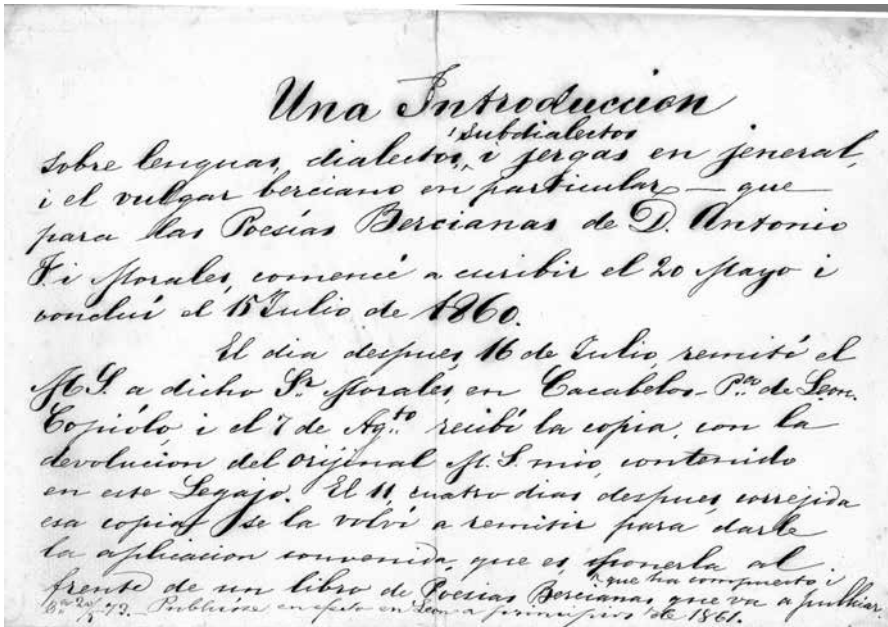 Una Introduccion
subdialectos
sobre lenguas, dialectos, i jergas en jeneral,
i el vulgar berciano en particular — que
para las Poesías Bercianas de D. Antonio
F. i Morales, comencé a escribir el 20 Mayo i
concluí el 15 Julio de 1860.
El dia despues, 16 de Julio, remití el
M.S. a dicho Sr. Morales, en Cacabelos - Pª. de Leon.
Copiólo, i el 7 de Agto. recibí la copia, con la
devolucion del orijinal M.S. mio, contenido
en este Legajo. El 11, cuatro dias despues, correjida
esa copia, se la volví a remitir para darle
la aplicacion convenida, que es, ponerla al
frente de un libro de Poesias Bercianas que va a publicar.
que ha compuesto i
73. Publicóse en efecto en Leon a principios de 1861.